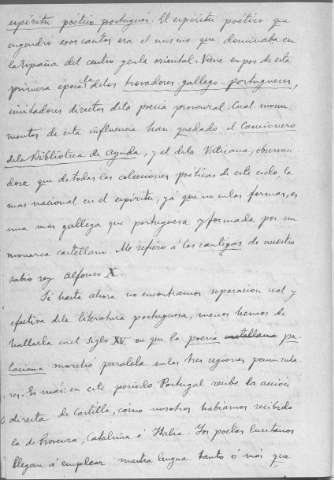 espíritu poético portugués. El espíritu poético que
engendró esos cantos era el mismo que dominaba en
la España del centro y en la oriental. Viene en pos de esta
primera época la de los trovadores gallego-portugueses,
imitadores directos de la poesía provenzal. Cual monu-
mentos de esta influencia han quedado el Cancionero
de la Biblioteca de Ajuda, y el de la Vaticana, observan-
dose que de todas las colecciones poéticas de este ciclo la
mas nacional en el espíritu, ya que no en las formas, es
una mas gallega que portuguesa y formada por un
monarca castellano. Me refiero á las cantigas de nuestro
sabio rey Alfonso X.
Si hasta ahora no encontramos separacion real y
efectiva de la literatura portuguesa, menos hemos de
hallarla en el Siglo XV en que la poesía castellana pe-
ninsular marchó paralela en las tres regiones peninsula-
res. Es más: en este periodo Portugal recibe la accion
directa de Castilla, como nosotros habiamos recibido
la de Provenza, Cataluña é Italia. Los poetas lusitanos
llegan á emplear nuestra lengua tanto ó más que